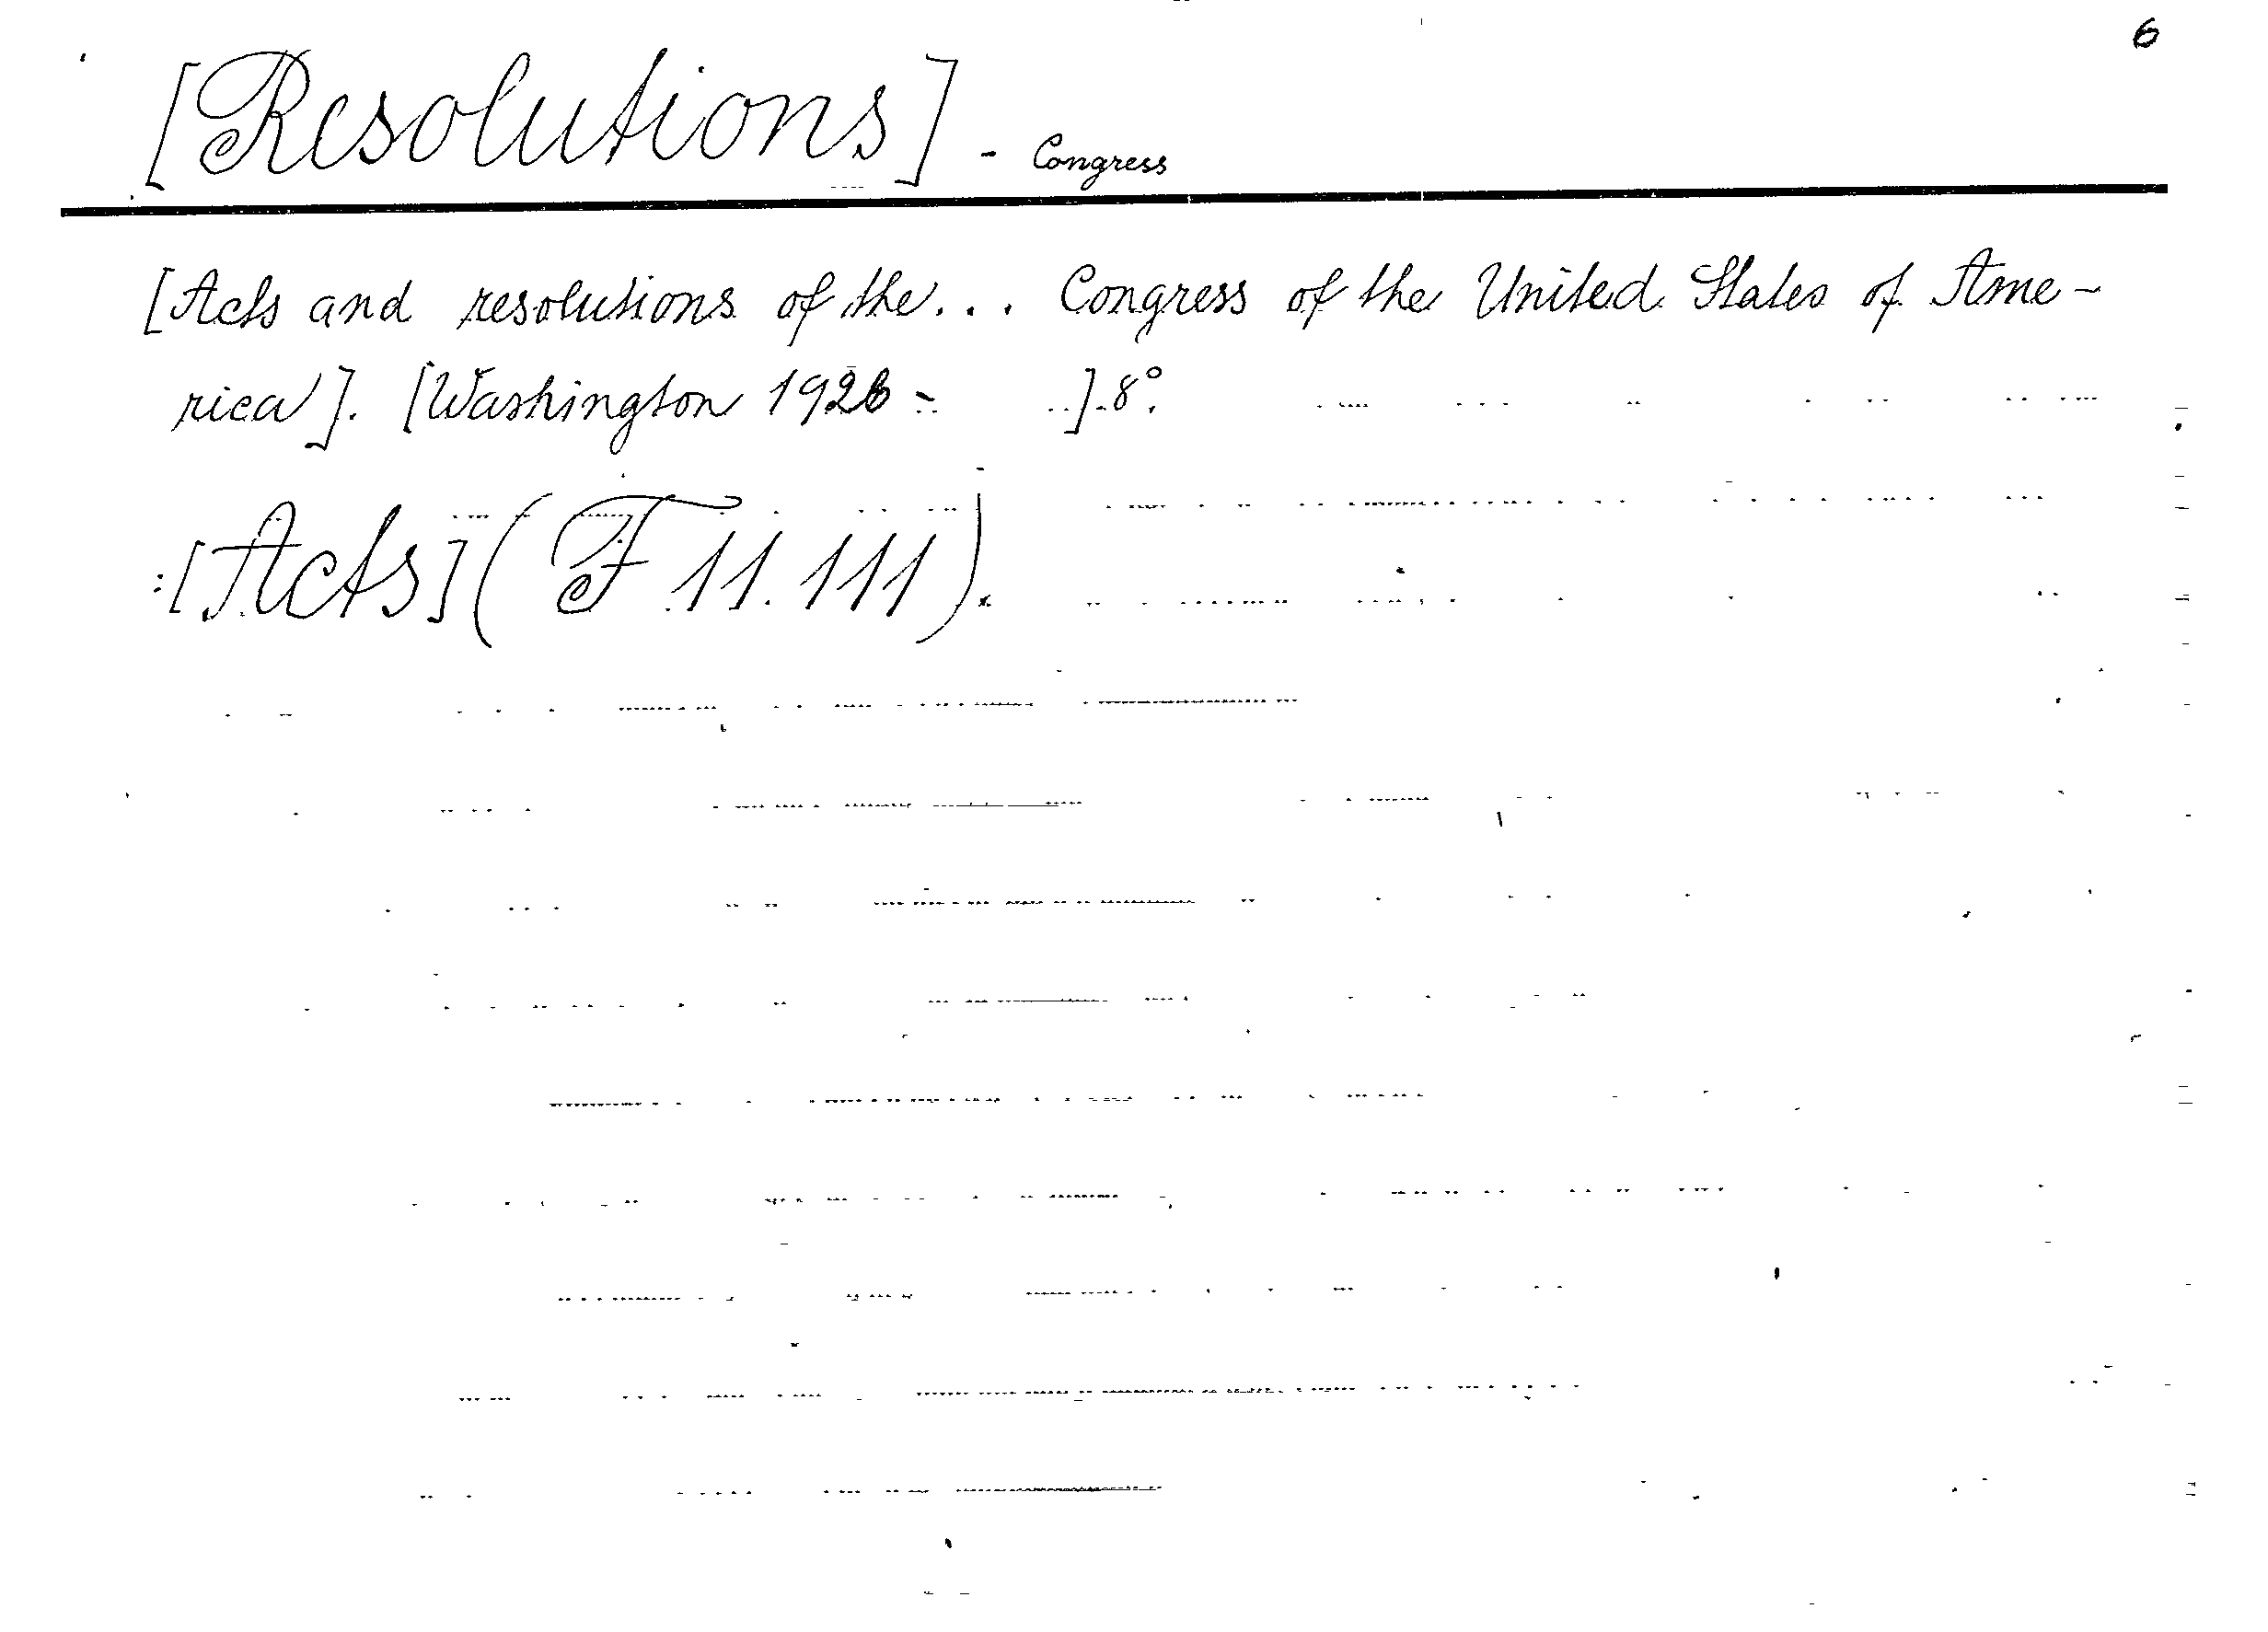 6
[Resolutions] - Congress
[Acts and resolutions of the... Congress of the United States of Ame-
rica]. [Washington 1926 - ]. 8°.
:[Acts] (F 11.111).